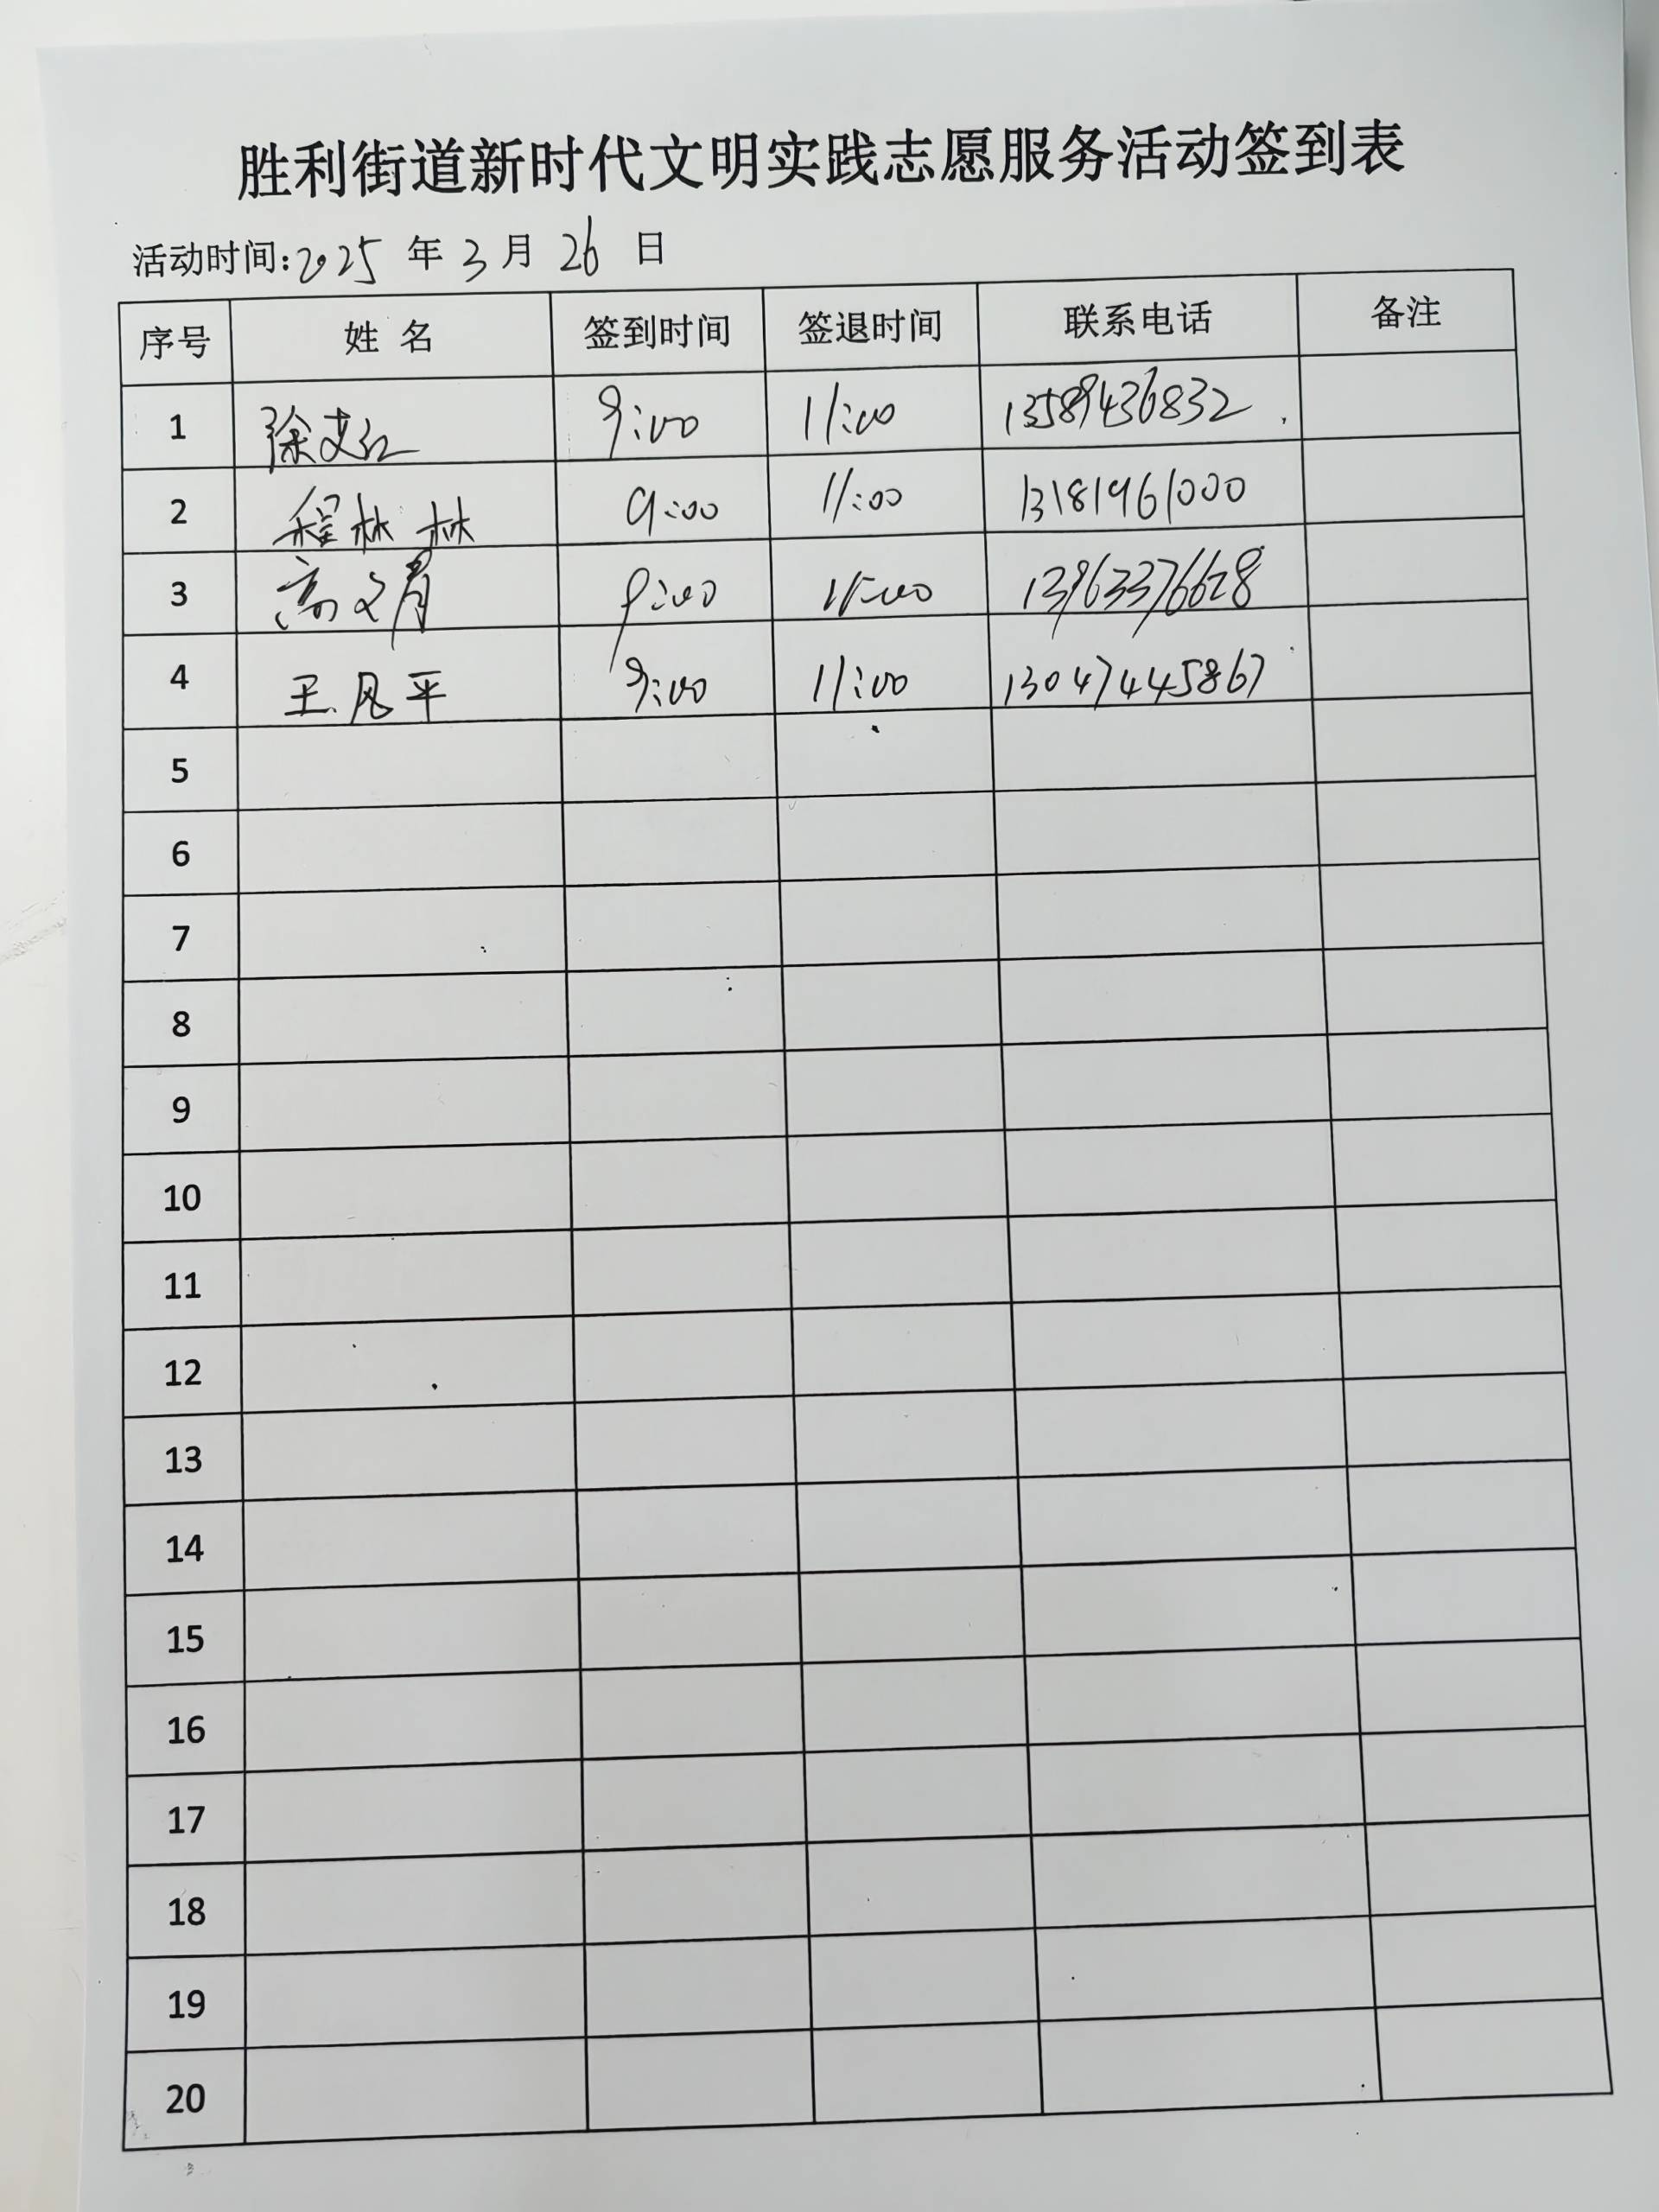 胜利街道新时代文明实践志愿服务活动签到表
活动时间:2025 年 3 月 26 日
序号 姓 名 签到时间 签退时间 联系电话 备注
1 徐 9:00 11:00 13589436832
2 程林林 9:00 11:00 13181961000
3 高文 9:00 11:00 13963376628
4 王凤平 9:00 11:00 13047445867
5
6
7
8
9
10
11
12
13
14
15
16
17
18
19
20